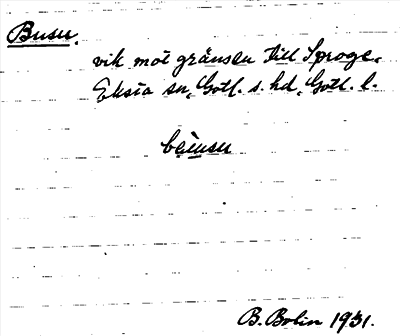 Busu.
vik mot gränsen till Sproge.
Eksta sn, Gotl. s. hd, Gotl. l.
B. Bolin 1931.